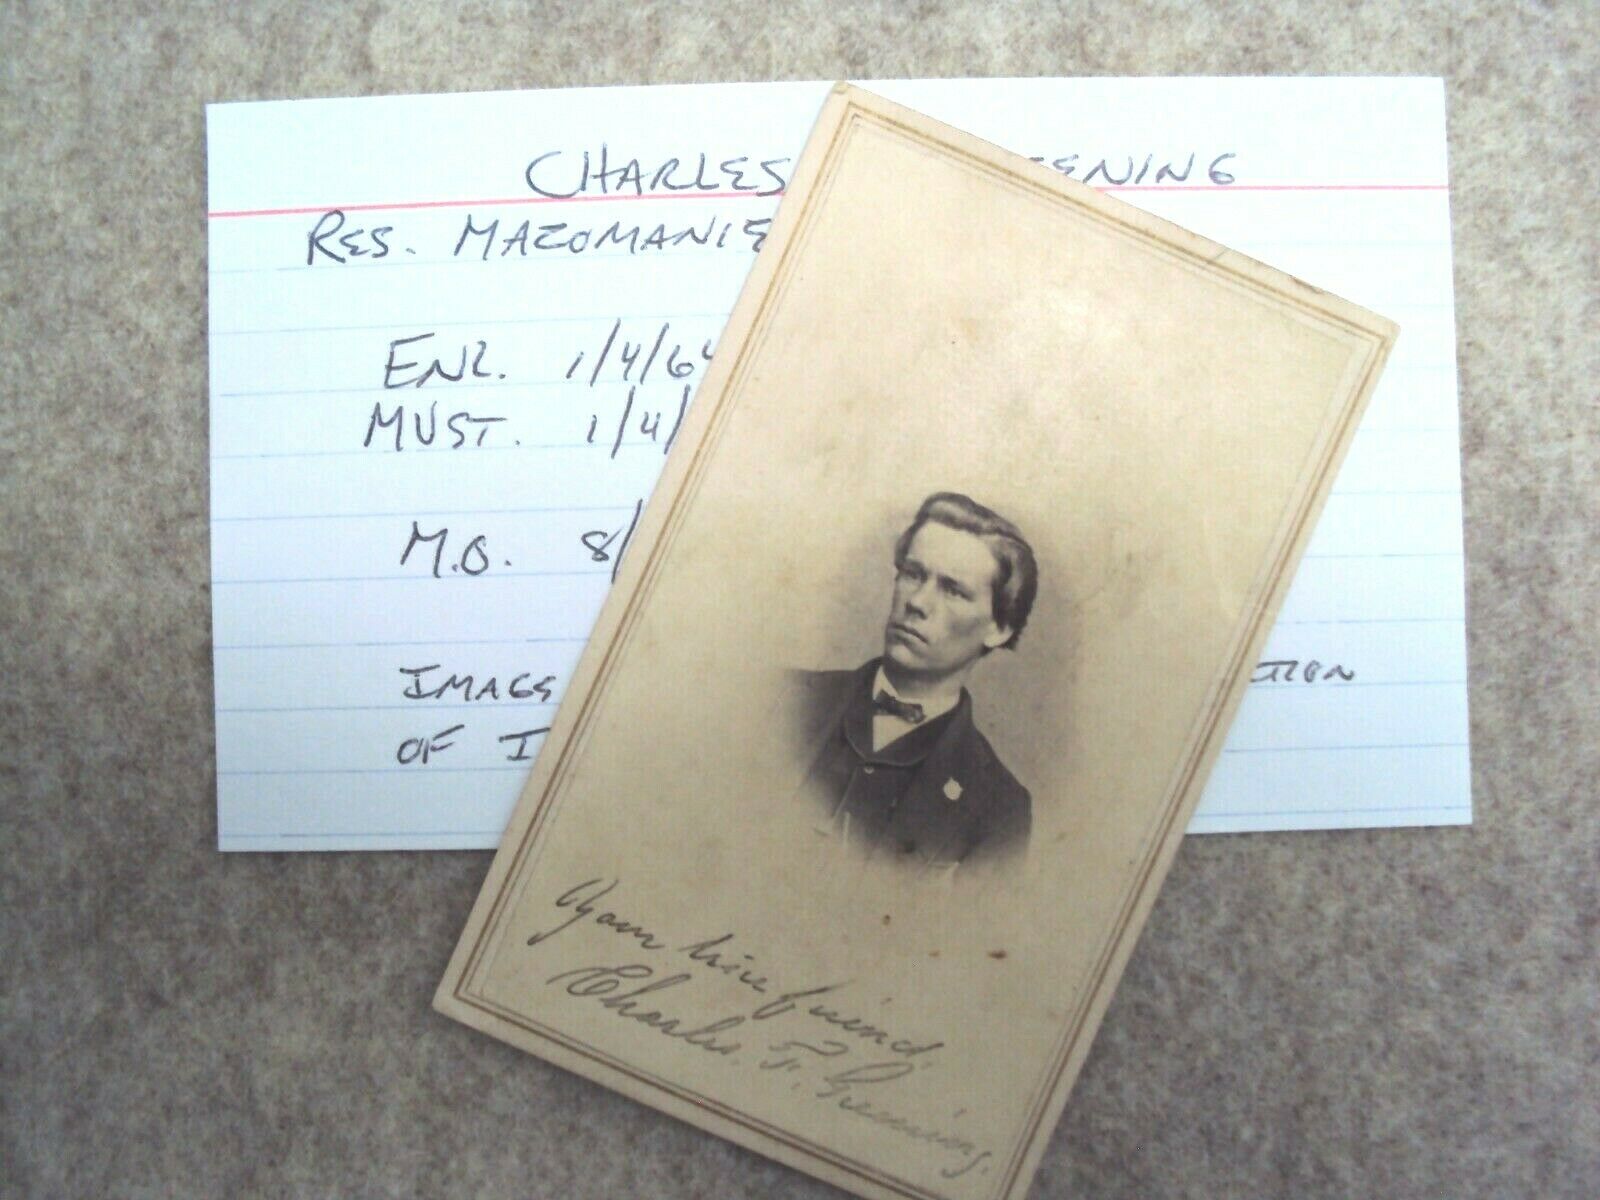 CHARLES EENING
RES. MAZOMANIE
ENL. 1/4/64
MUST. 1/4/
M.O. 8/
IMAGE TION
OF I
Your true friend,
Charles. F. Greening.